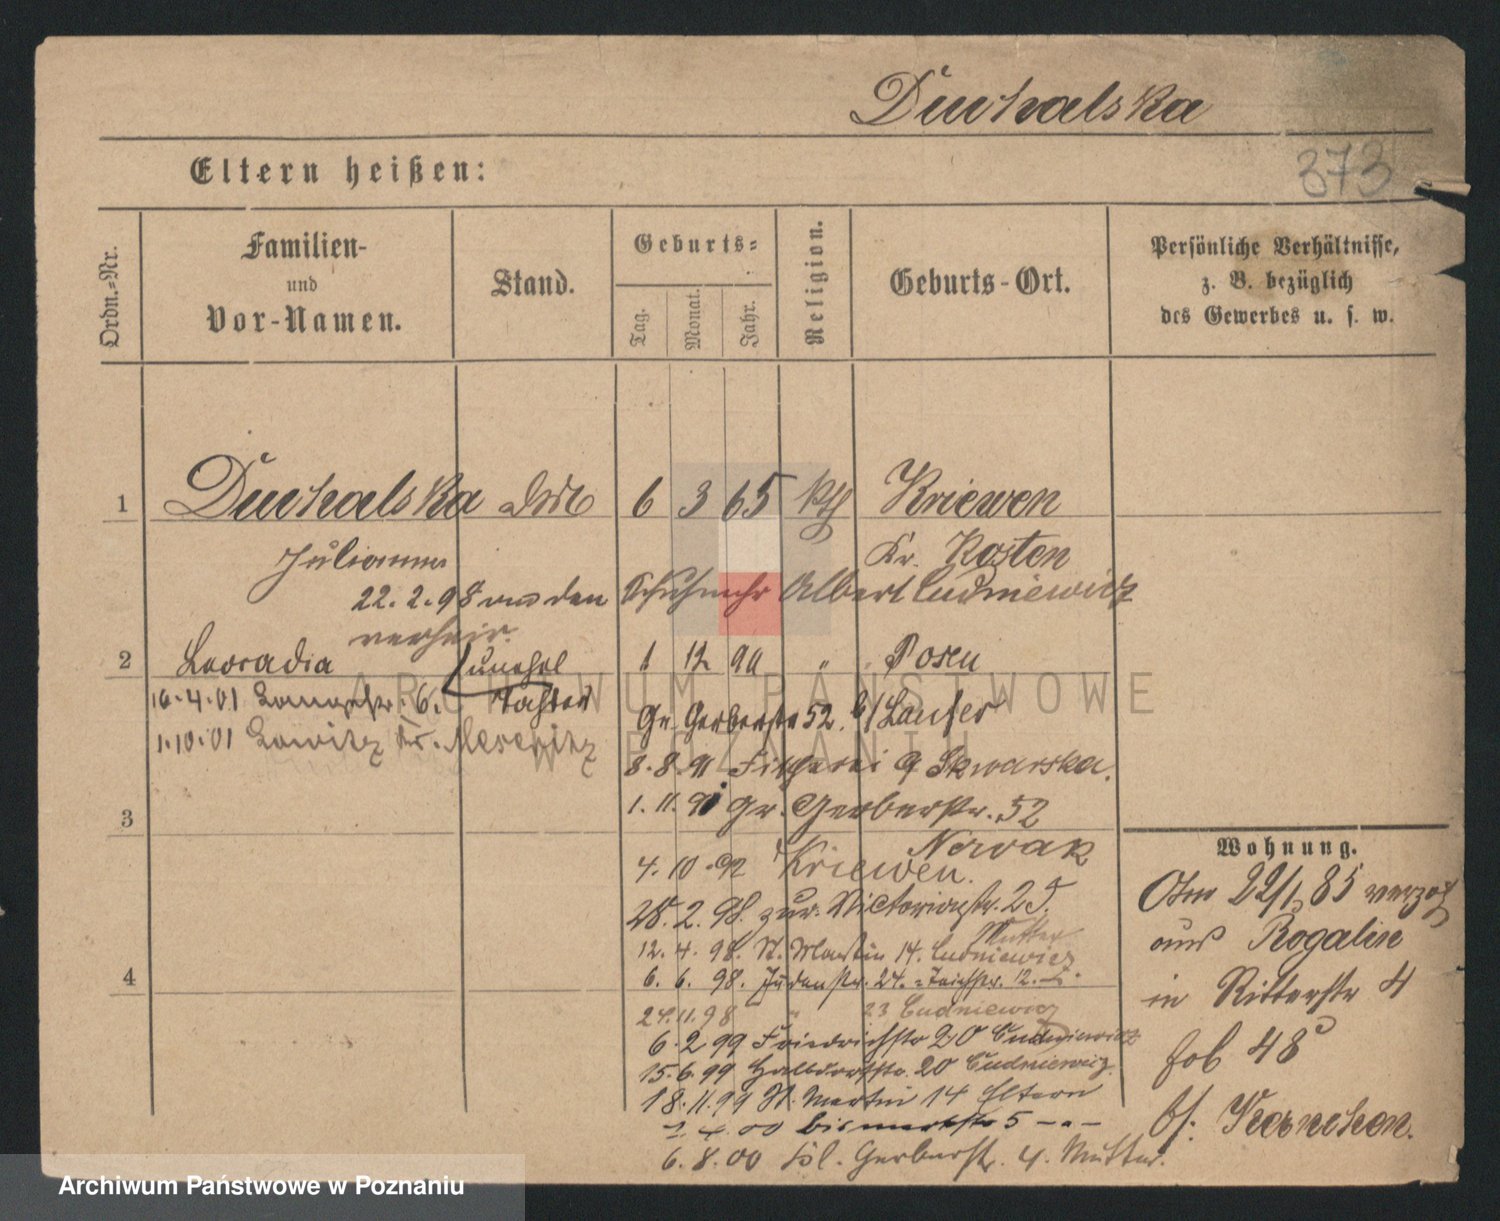 Duchalska
373
Eltern heißen:
Ordn.-Nr.
Familien-
und
Vor-Namen.
Stand.
Geburts-
Tag.
Monat.
Jahr.
Religion.
Geburts-Ort.
Persönliche Verhältnisse,
z. B. bezüglich
des Gewerbes u. s. w.
1 Duchalska 6 3 65 kth Kriewen
Julianna Kr. Kosten
22.2.98 Albert Cudniewicz
verheir.
2 Leocadia unehel 1 12 90 " Posen
Tochter
16.4.01 6.
1.10.01 Kr. Meseritz
Gr. Gerberstr 52 b/ Laufer
8.8.91 Fischerei 9 Skwarska.
1.11.91 Gr. Gerberstr. 52
Nowak
3
4.10.92 Kriewen.
28.2.98. zur. Victoriastr. 25.
Mutter
12.4.98. St. Martin 14. Cudniewicz
4
6.6.98. Judenstr. 24. Teichstr. 12.
24.11.98 " 23 Cudniewicz
6.2 99 Friedrichstr 20 Cudniewicz
15.6.99 Halbdorfstr. 20 Cudniewicz
18.11.99 St. Martin 14 Eltern
4 00 Bismarkstr 5 - " -
6.8.00 Gerberstr. 4. Mutter.
Wohnung.
22/1 85
aus Rogalin
in Ritterstr 4
fol 48
bf.
ARCHIWUM PAŃSTWOWE
W POZNANIU
Archiwum Państwowe w Poznaniu